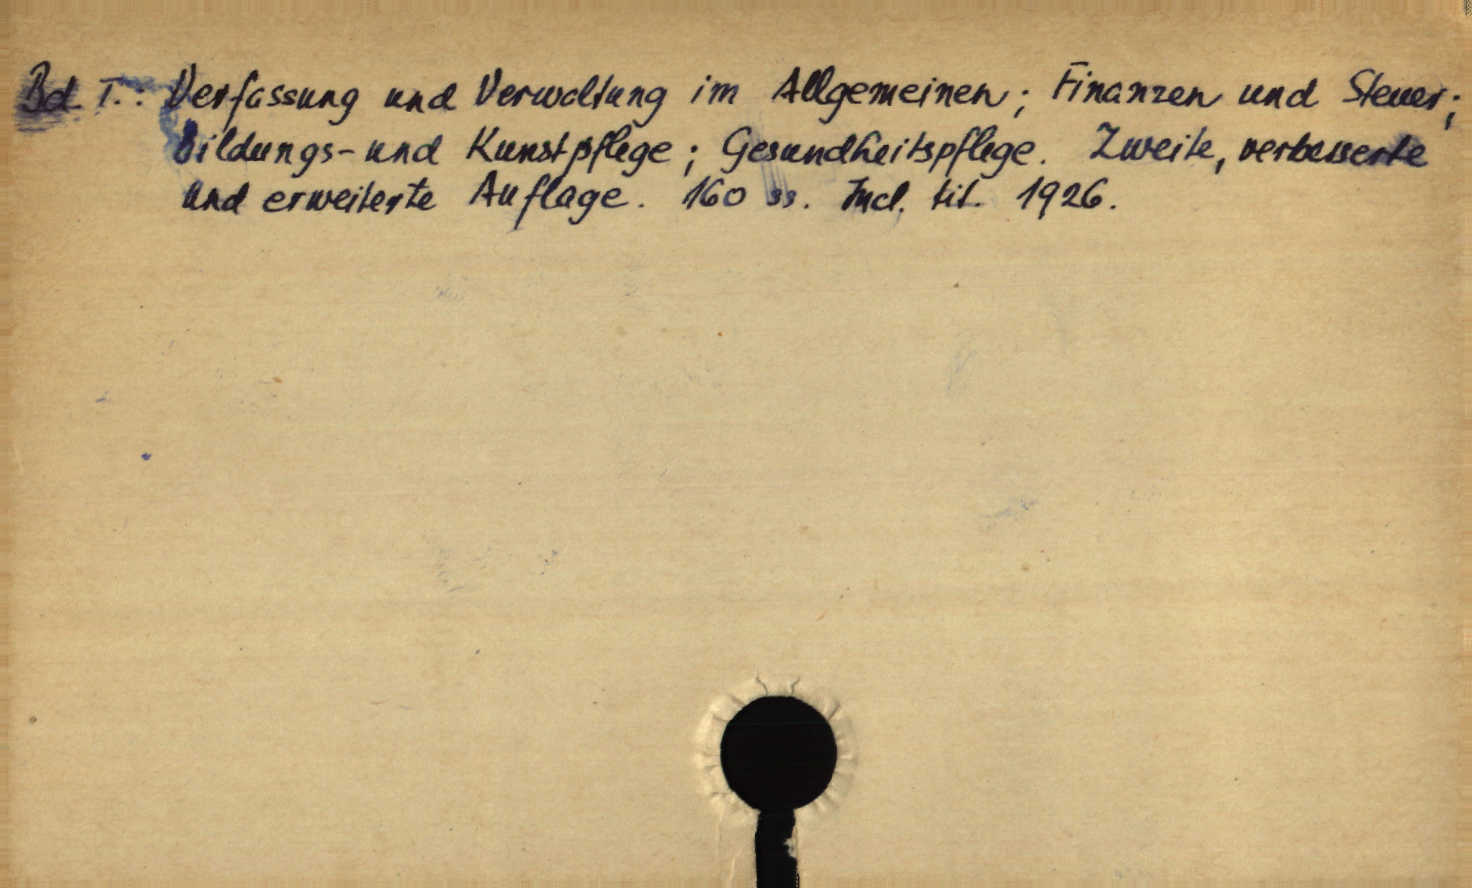 Bd I.: Verfassung und Verwaltung im Allgemeinen; Finanzen und Steuer;
Bildungs- und Kunstpflege; Gesundheitspflege. Zweite, verbesserte
und erweiterte Auflage. 160 ss. Incl. tit. 1926.